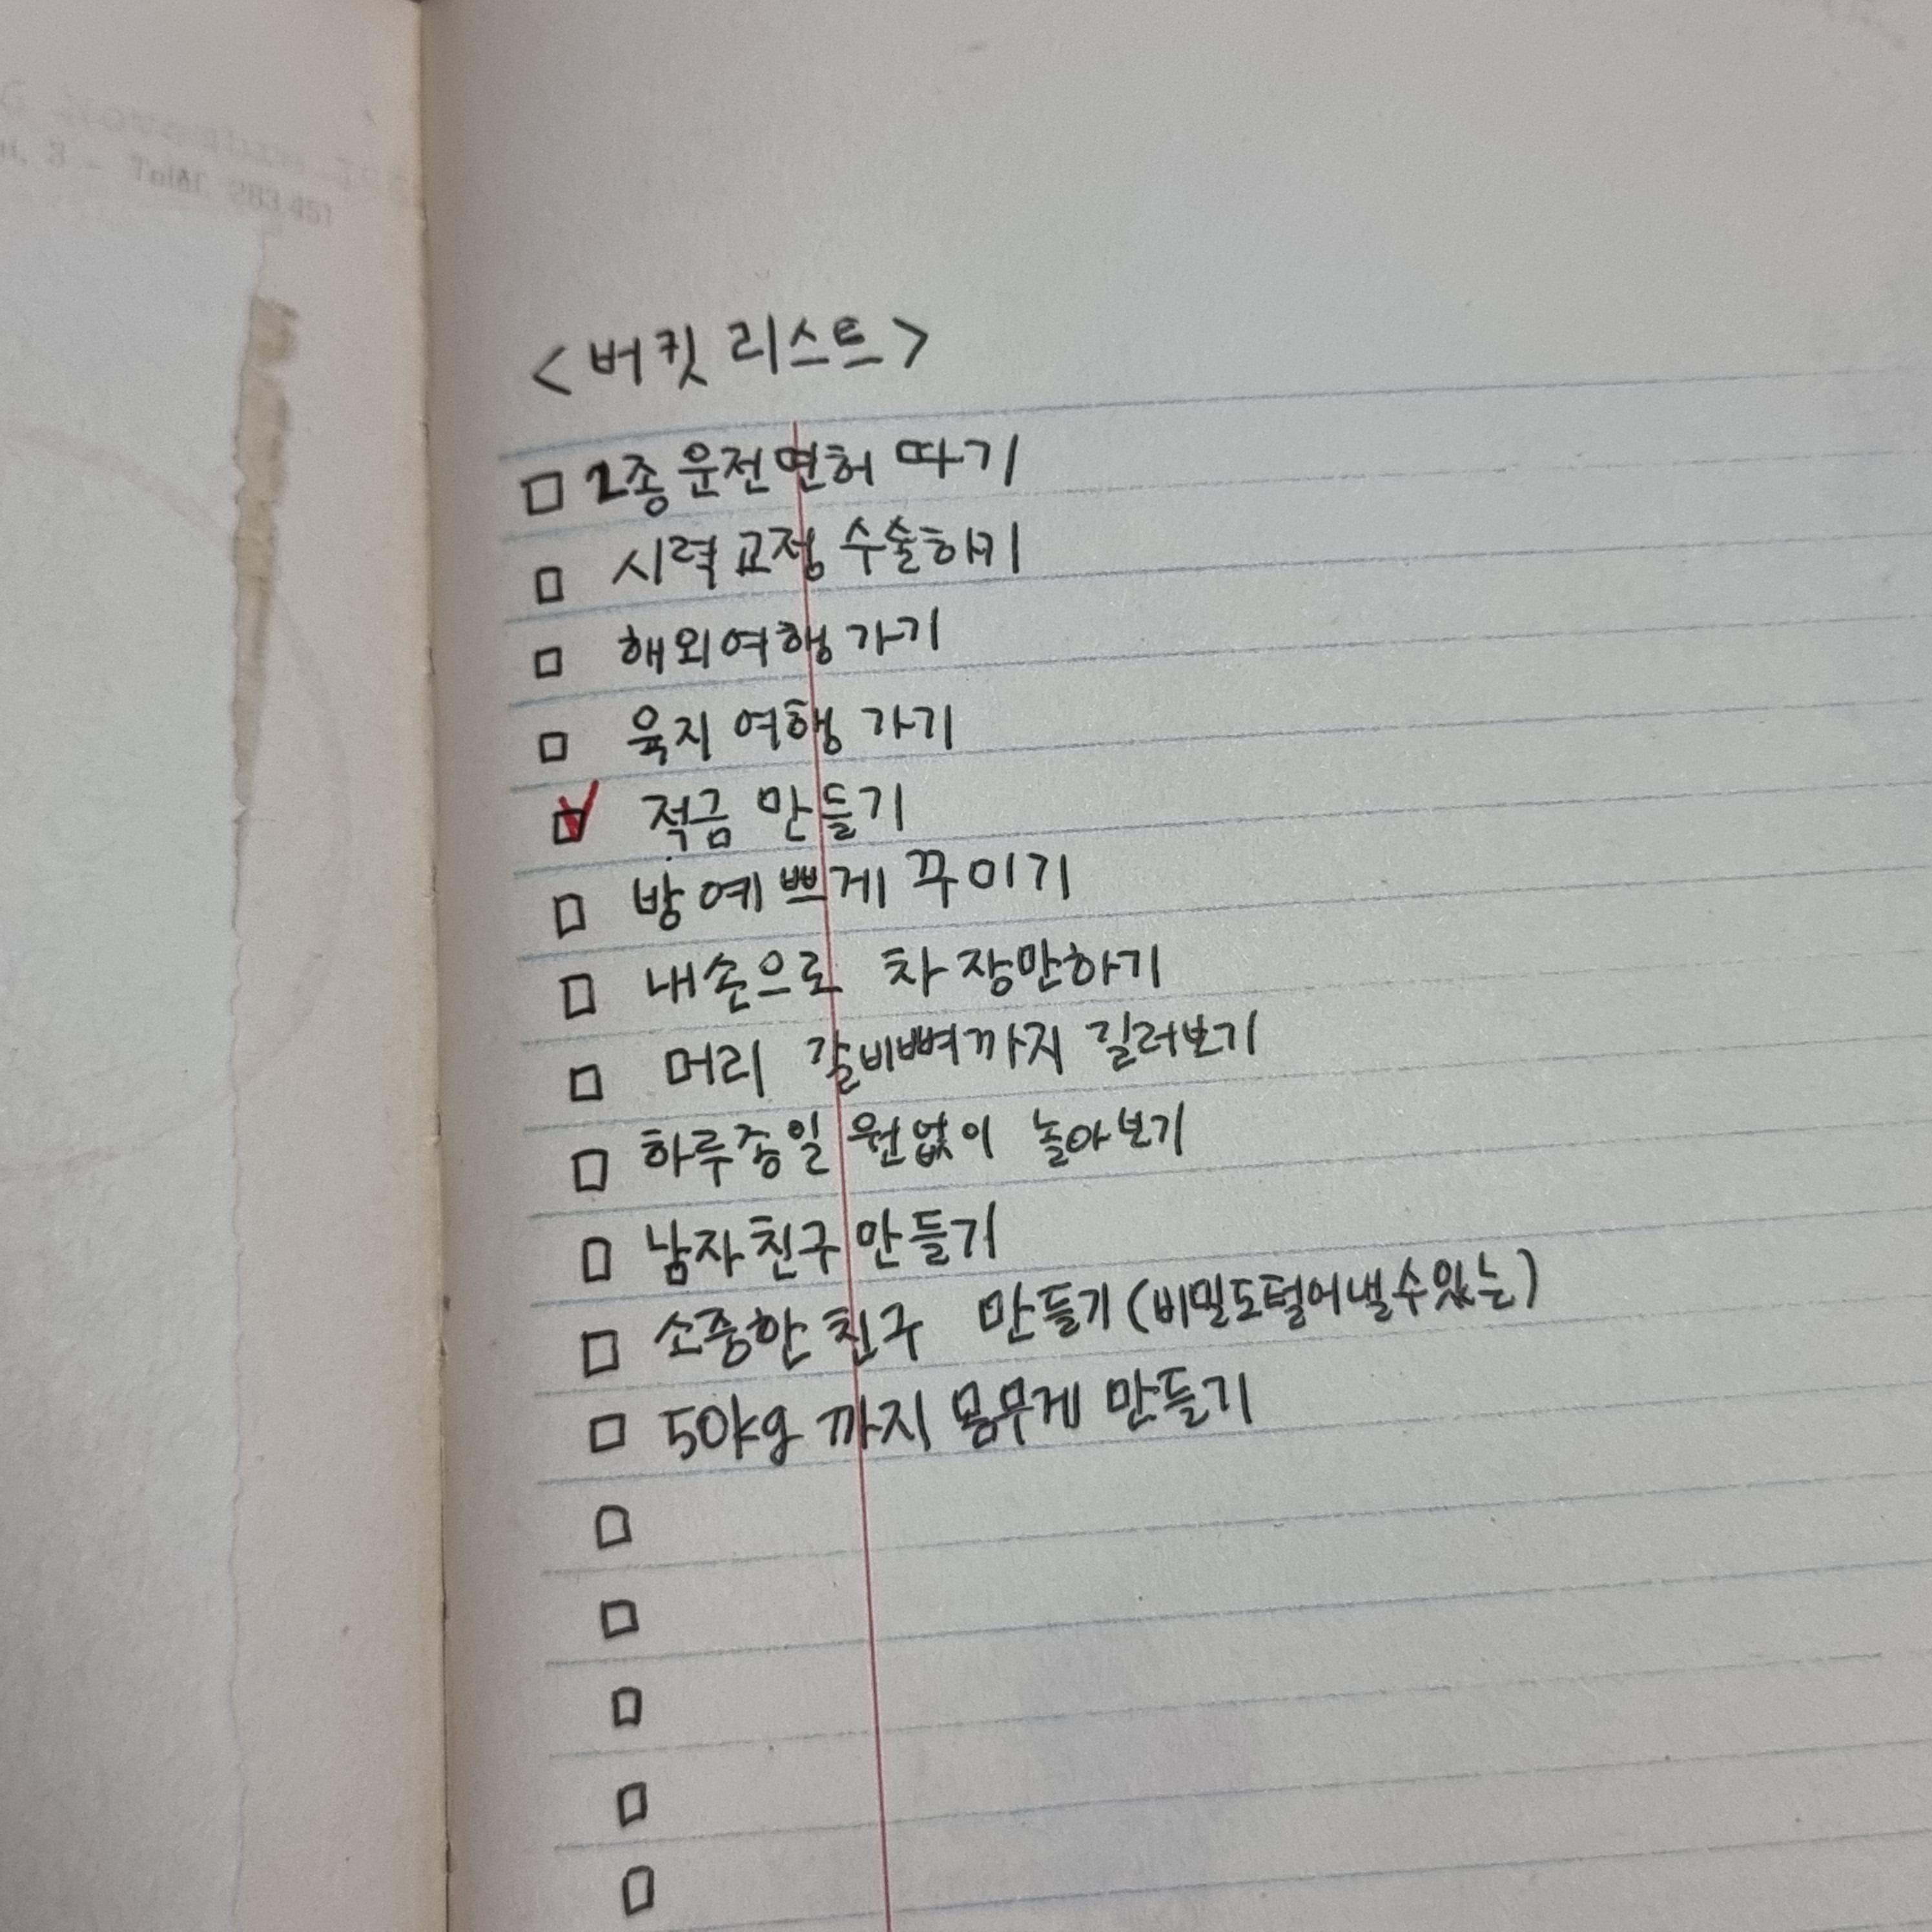 <버킷 리스트>
□ 2종 운전면허 따기
□ 시력 교정 수술하기
□ 해외여행 가기
□ 육지 여행 가기
☑ 적금 만들기
□ 방 예쁘게 꾸미기
□ 내손으로 차 장만하기
□ 머리 갈비뼈까지 길러보기
□ 하루종일 원없이 놀아보기
□ 남자친구 만들기
□ 소중한 친구 만들기 (비밀도털어낼수있는)
□ 50kg 까지 몸무게 만들기
□
□
□
□
□